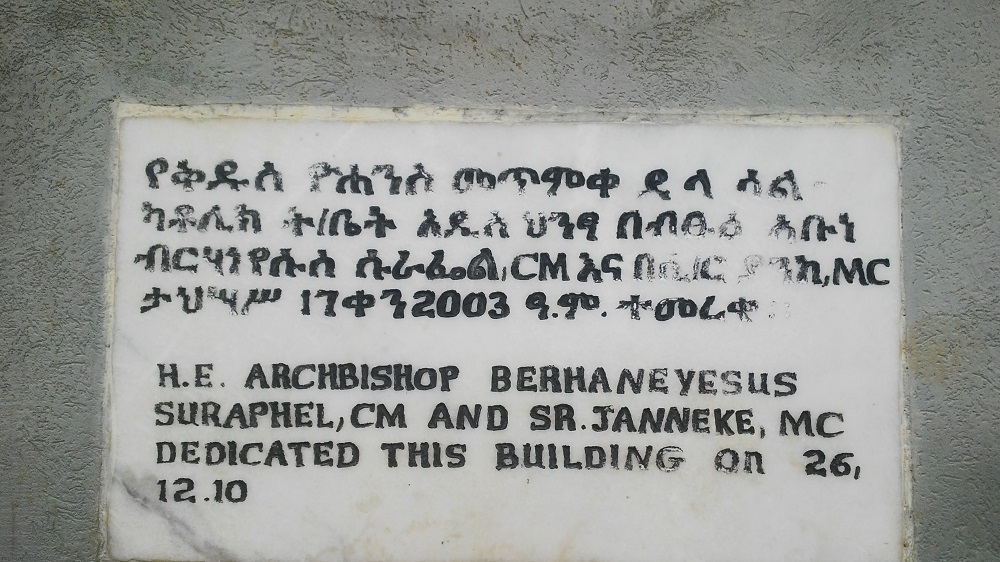 የቅዱስ ዮሐንስ መጥምቀ ዲ ላ ሳል
ካቶሊክ ት/ቤት አዲስ ህንፃ በብፁዕ አቡነ
ብርሃነየሱስ ሱራፌል,CM እና በሲ/ር ያንክ,MC
ታህሣሥ 17ቀን 2003 ዓ.ም. ተመረቀ
H.E. ARCHBISHOP BERHANEYESUS
SURAPHEL,CM AND SR.JANNEKE, MC
DEDICATED THIS BUILDING On 26,
12.10